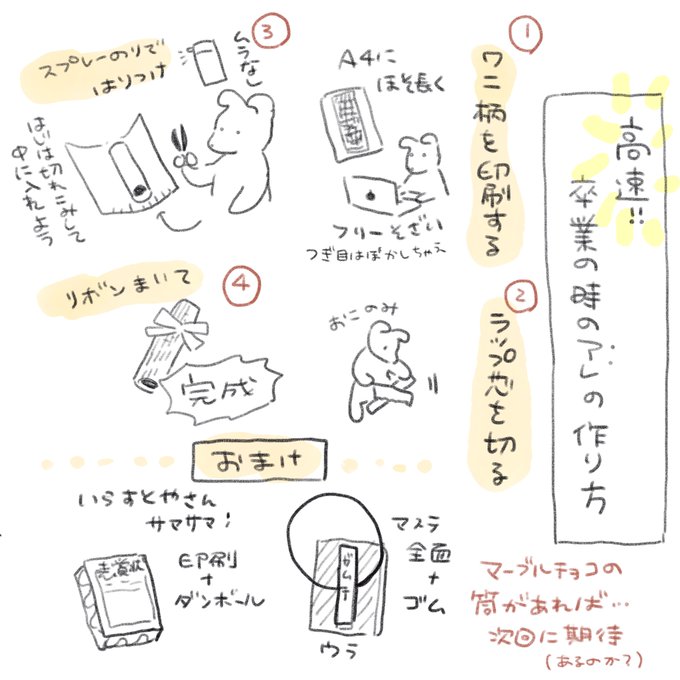 高速!!
卒業の時のアレの作り方
①
ワニ柄を印刷する
A4に
ほそ長く
フリーそざい
つぎ目はぼかしちゃえ
②
ラップ芯を切る
おこのみ
③
スプレーのりで
はりつけ
ムラなし
はじは切れこみして
中に入れよう
④
リボンまいて
完成
おまけ
いらすとやさん
サマサマ!
印刷
+
ダンボール
賞状
マステ
全面
+
ゴム
ガムテ
ウラ
マーブルチョコの
筒があれば…
次回に期待
(あるのかて)